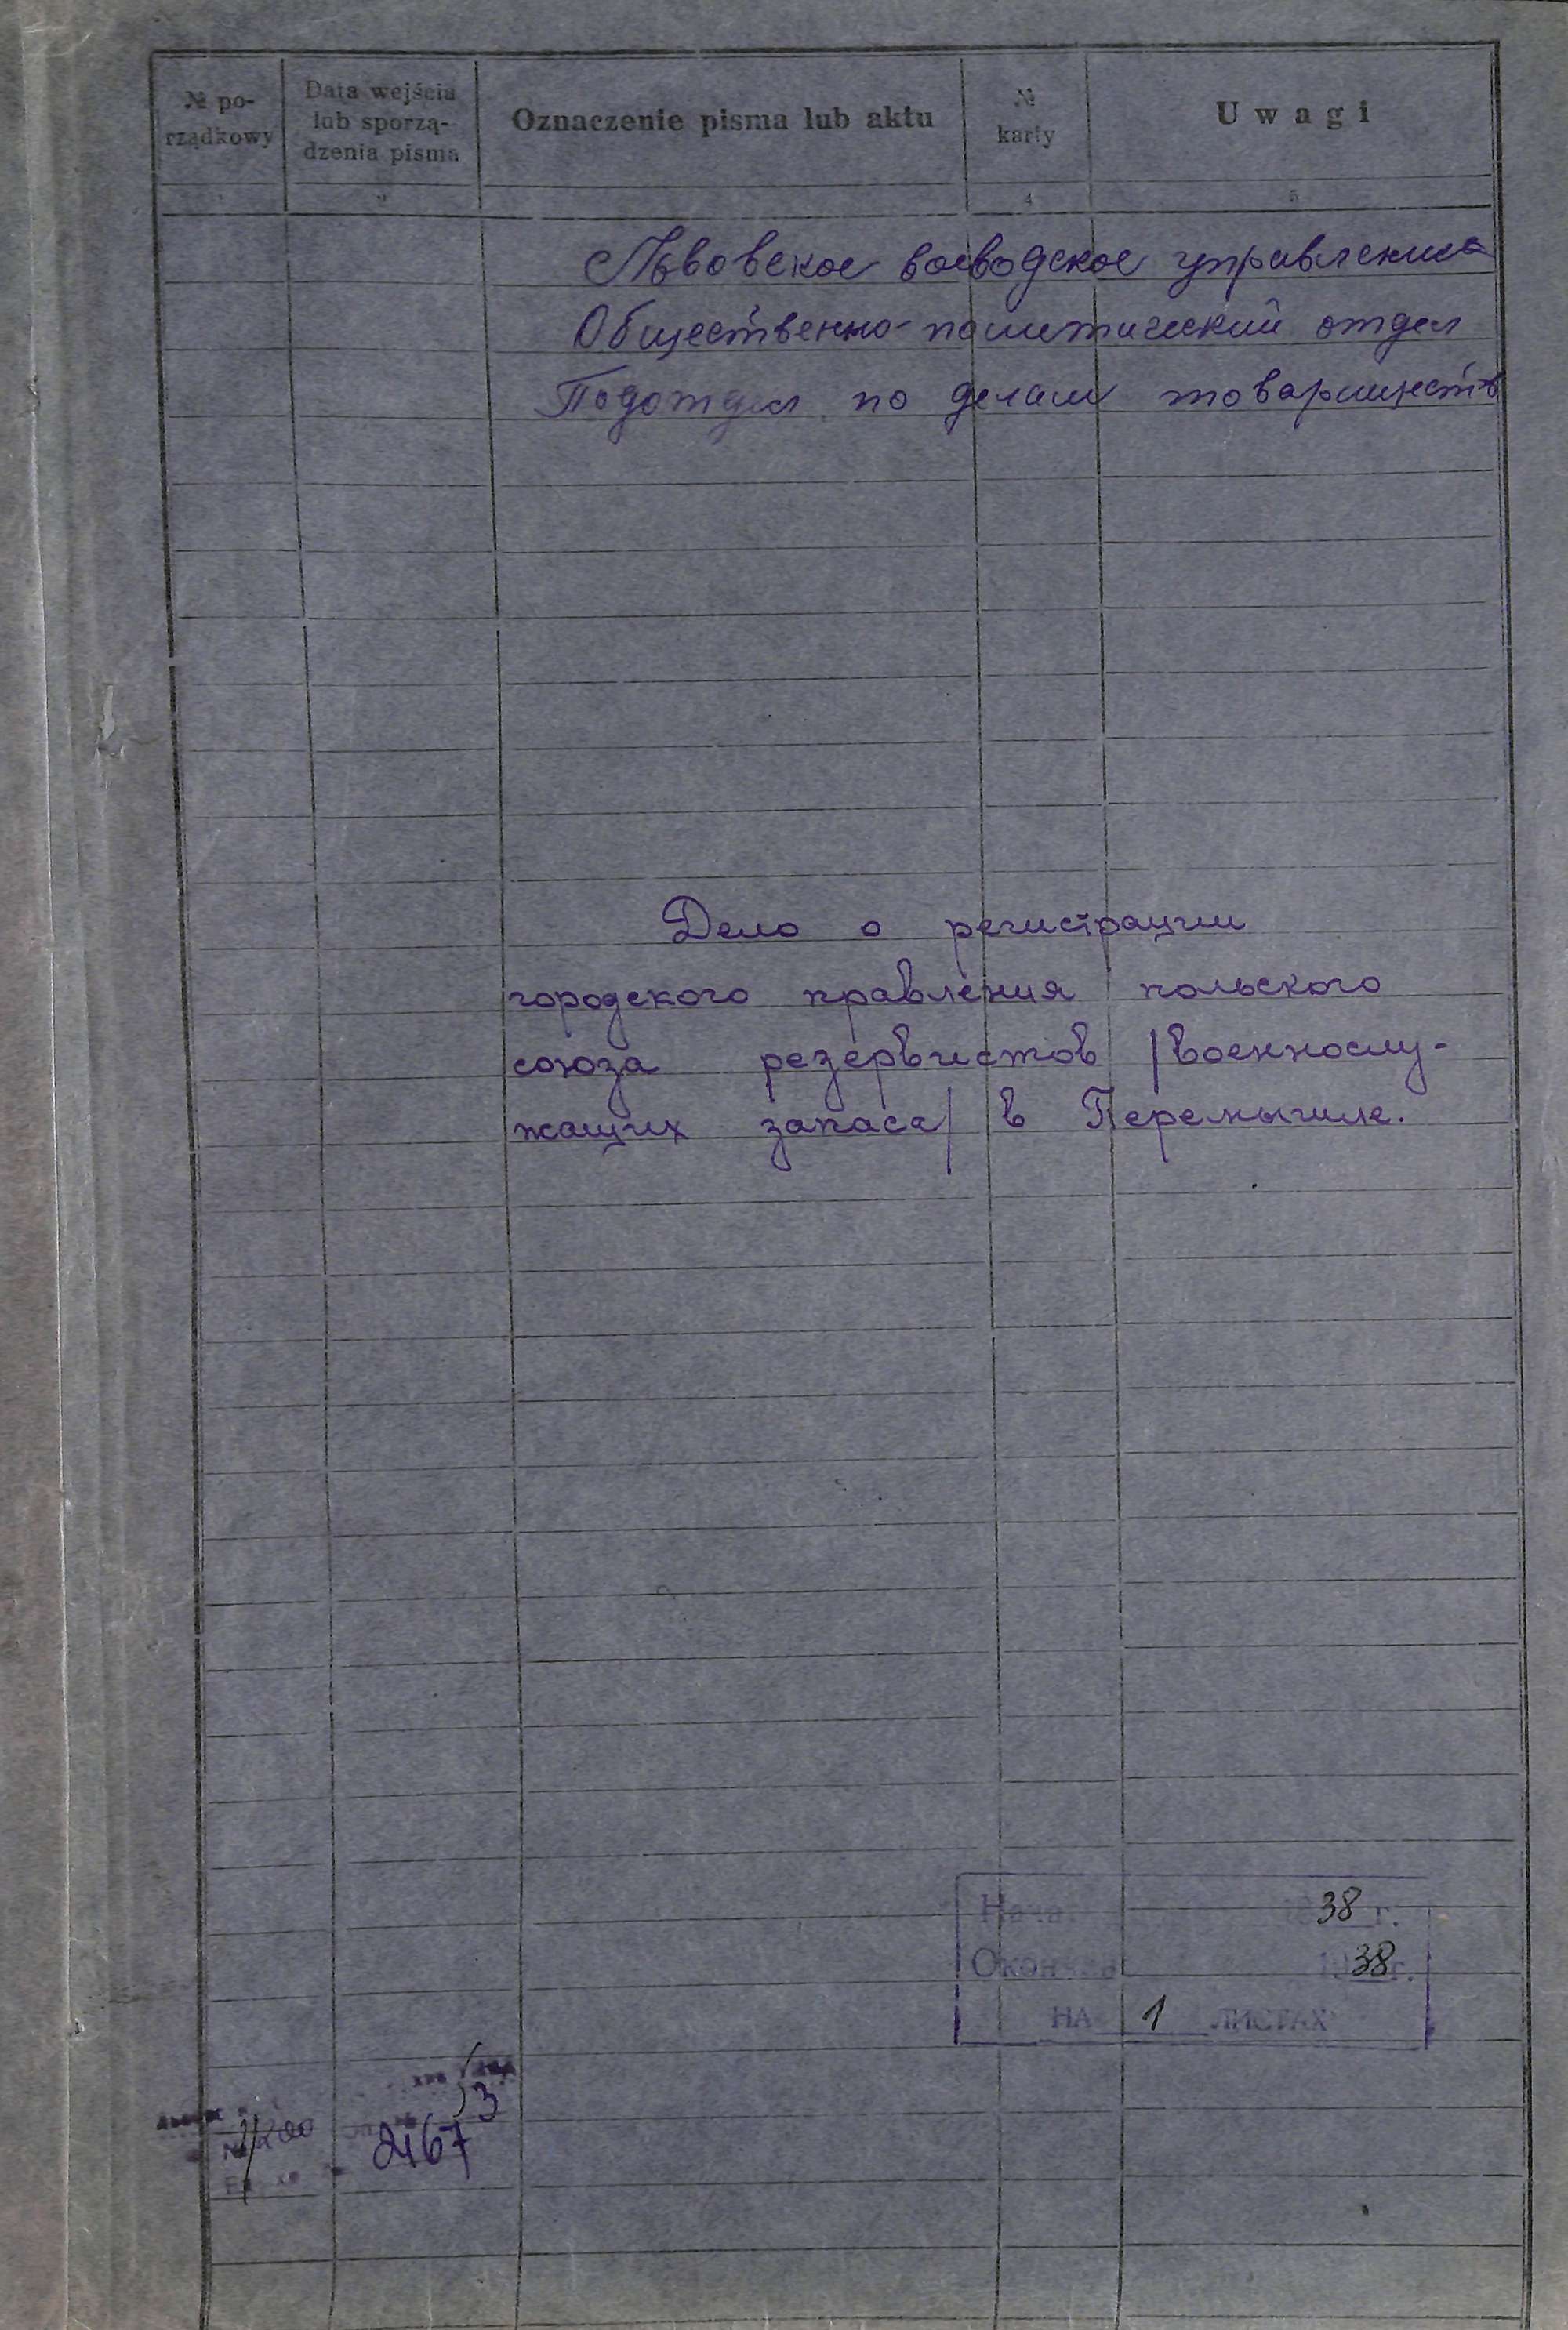 № po-
rządkowy
Data wejścia
lub sporzą-
dzenia pisma
Oznaczenie pisma lub aktu
№
karty
Uwagi
2
4
5
Львовское воеводское управление
Общественно-политический отдел
Подотдел по делам товариществ
Дело о регистрации
городского правления польского
союза резервистов /военнослу-
жащих запаса/ в Перемышле.
38 г.
1938 г.
НА 1 ЛИСТАХ
3
2167